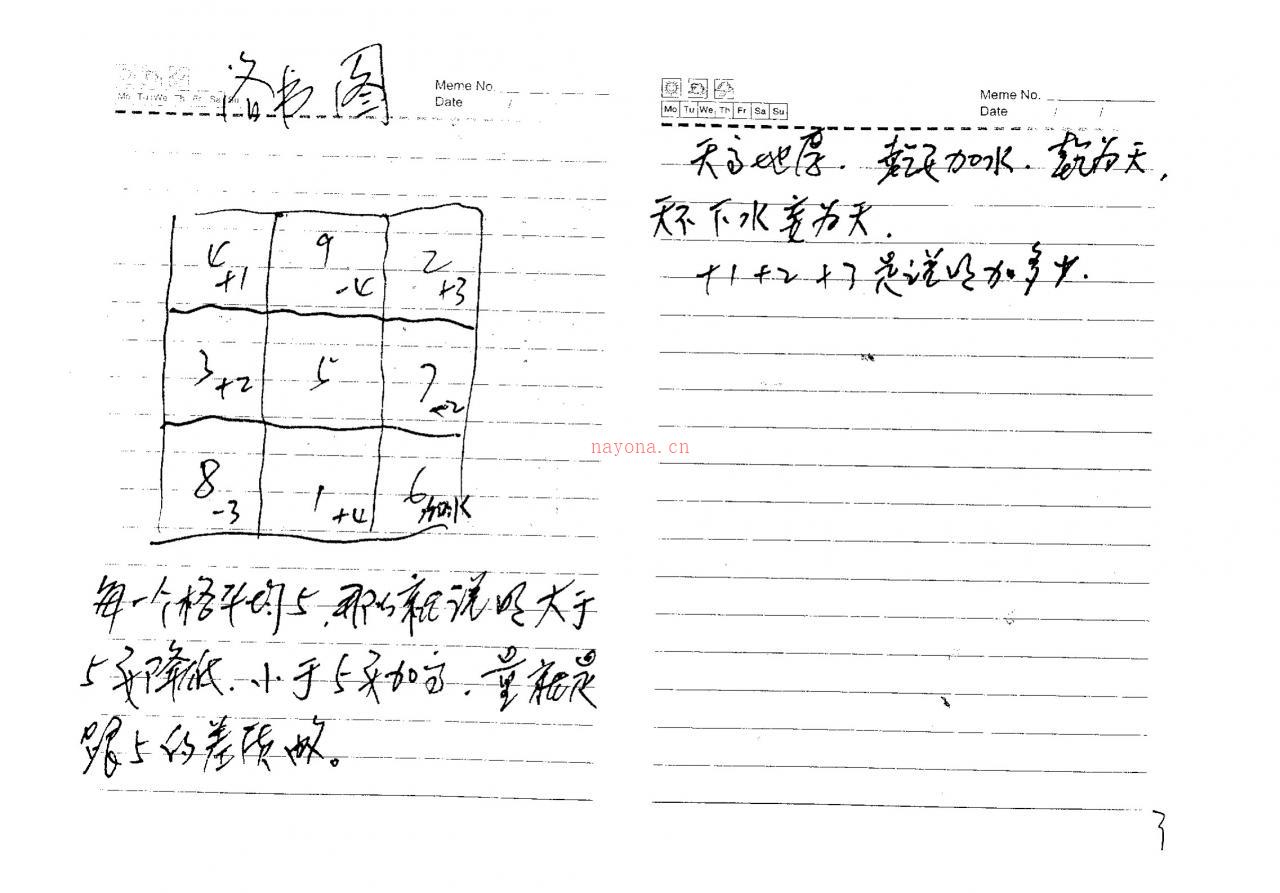 洛书图
Meme No.
Date /
Mo Tu We Th Fr Sa Su
4 +1 9 -4 2 +3
3 +2 5 7 -2
8 -3 1 +4 6 加水
每一个格平均5,那么就说明大于
5要降低.小于5要加高.量就是
跟5的差质做。
Meme No.
Mo Tu We Th Fr Sa Su
Date / /
天高地厚.乾要加水.乾为天,
天不下水变为天.
+1 +2 +3 是说明加多少.
nayona.cn
3